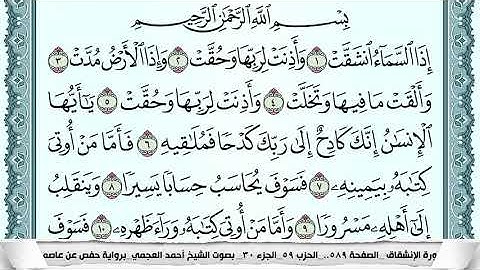 بِسْمِ ٱللَّهِ ٱلرَّحْمَٰنِ ٱلرَّحِيمِ
إِذَا ٱلسَّمَآءُ ٱنشَقَّتْ ١ وَأَذِنَتْ لِرَبِّهَا وَحُقَّتْ ٢ وَإِذَا ٱلْأَرْضُ مُدَّتْ ٣
وَأَلْقَتْ مَا فِيهَا وَتَخَلَّتْ ٤ وَأَذِنَتْ لِرَبِّهَا وَحُقَّتْ ٥ يَٰٓأَيُّهَا
ٱلْإِنسَٰنُ إِنَّكَ كَادِحٌ إِلَىٰ رَبِّكَ كَدْحًا فَمُلَٰقِيهِ ٦ فَأَمَّا مَنْ أُوتِىَ
كِتَٰبَهُۥ بِيَمِينِهِۦ ٧ فَسَوْفَ يُحَاسَبُ حِسَابًا يَسِيرًا ٨ وَيَنقَلِبُ
إِلَىٰٓ أَهْلِهِۦ مَسْرُورًا ٩ وَأَمَّا مَنْ أُوتِىَ كِتَٰبَهُۥ وَرَآءَ ظَهْرِهِۦ ١٠ فَسَوْفَ
ورة الإنشقاق_ الصفحة ٥٨٩.. الحزب ٥٩_ الجزء ٣٠_ بصوت الشيخ أحمد العجمي_ برواية حفص عن عاصم